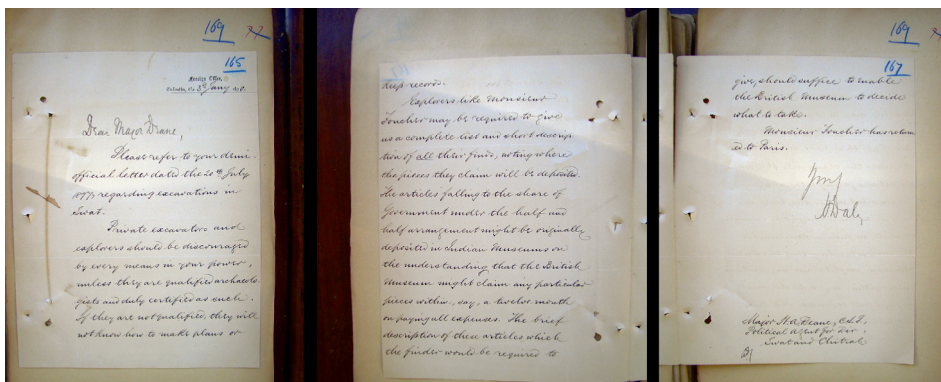 169
165
Foreign Office,
Calcutta, the 3rd Jany
Dear Major Deane,
Please refer to your demi-
official letter dated the 20th July
regarding excavations in
Swat.
Private excavators and
explorers should be discouraged
by every means in your power,
unless they are qualified archaeolo-
gists and duly certified as such.
If they are not qualified, they will
not know how to make plans or
keep records.
Explorers like Monsieur
Foucher may be required to give
us a complete list and short descrip-
tion of all their finds, noting where
the pieces they claim will be deposited.
The articles falling to the share of
Government under the half and
half arrangement might be originally
deposited in Indian Museums on
the understanding that the British
Museum might claim any particular
pieces within, say, a twelve month
on paying all expenses. The brief
description of these articles which
the finder would be required to
169
167
give, should suffice to enable
the British Museum to decide
what to take.
Monsieur Foucher has return-
ed to Paris.
Major H.A. Deane, C.S.I.
Political Agent for Dir,
Swat and Chitral